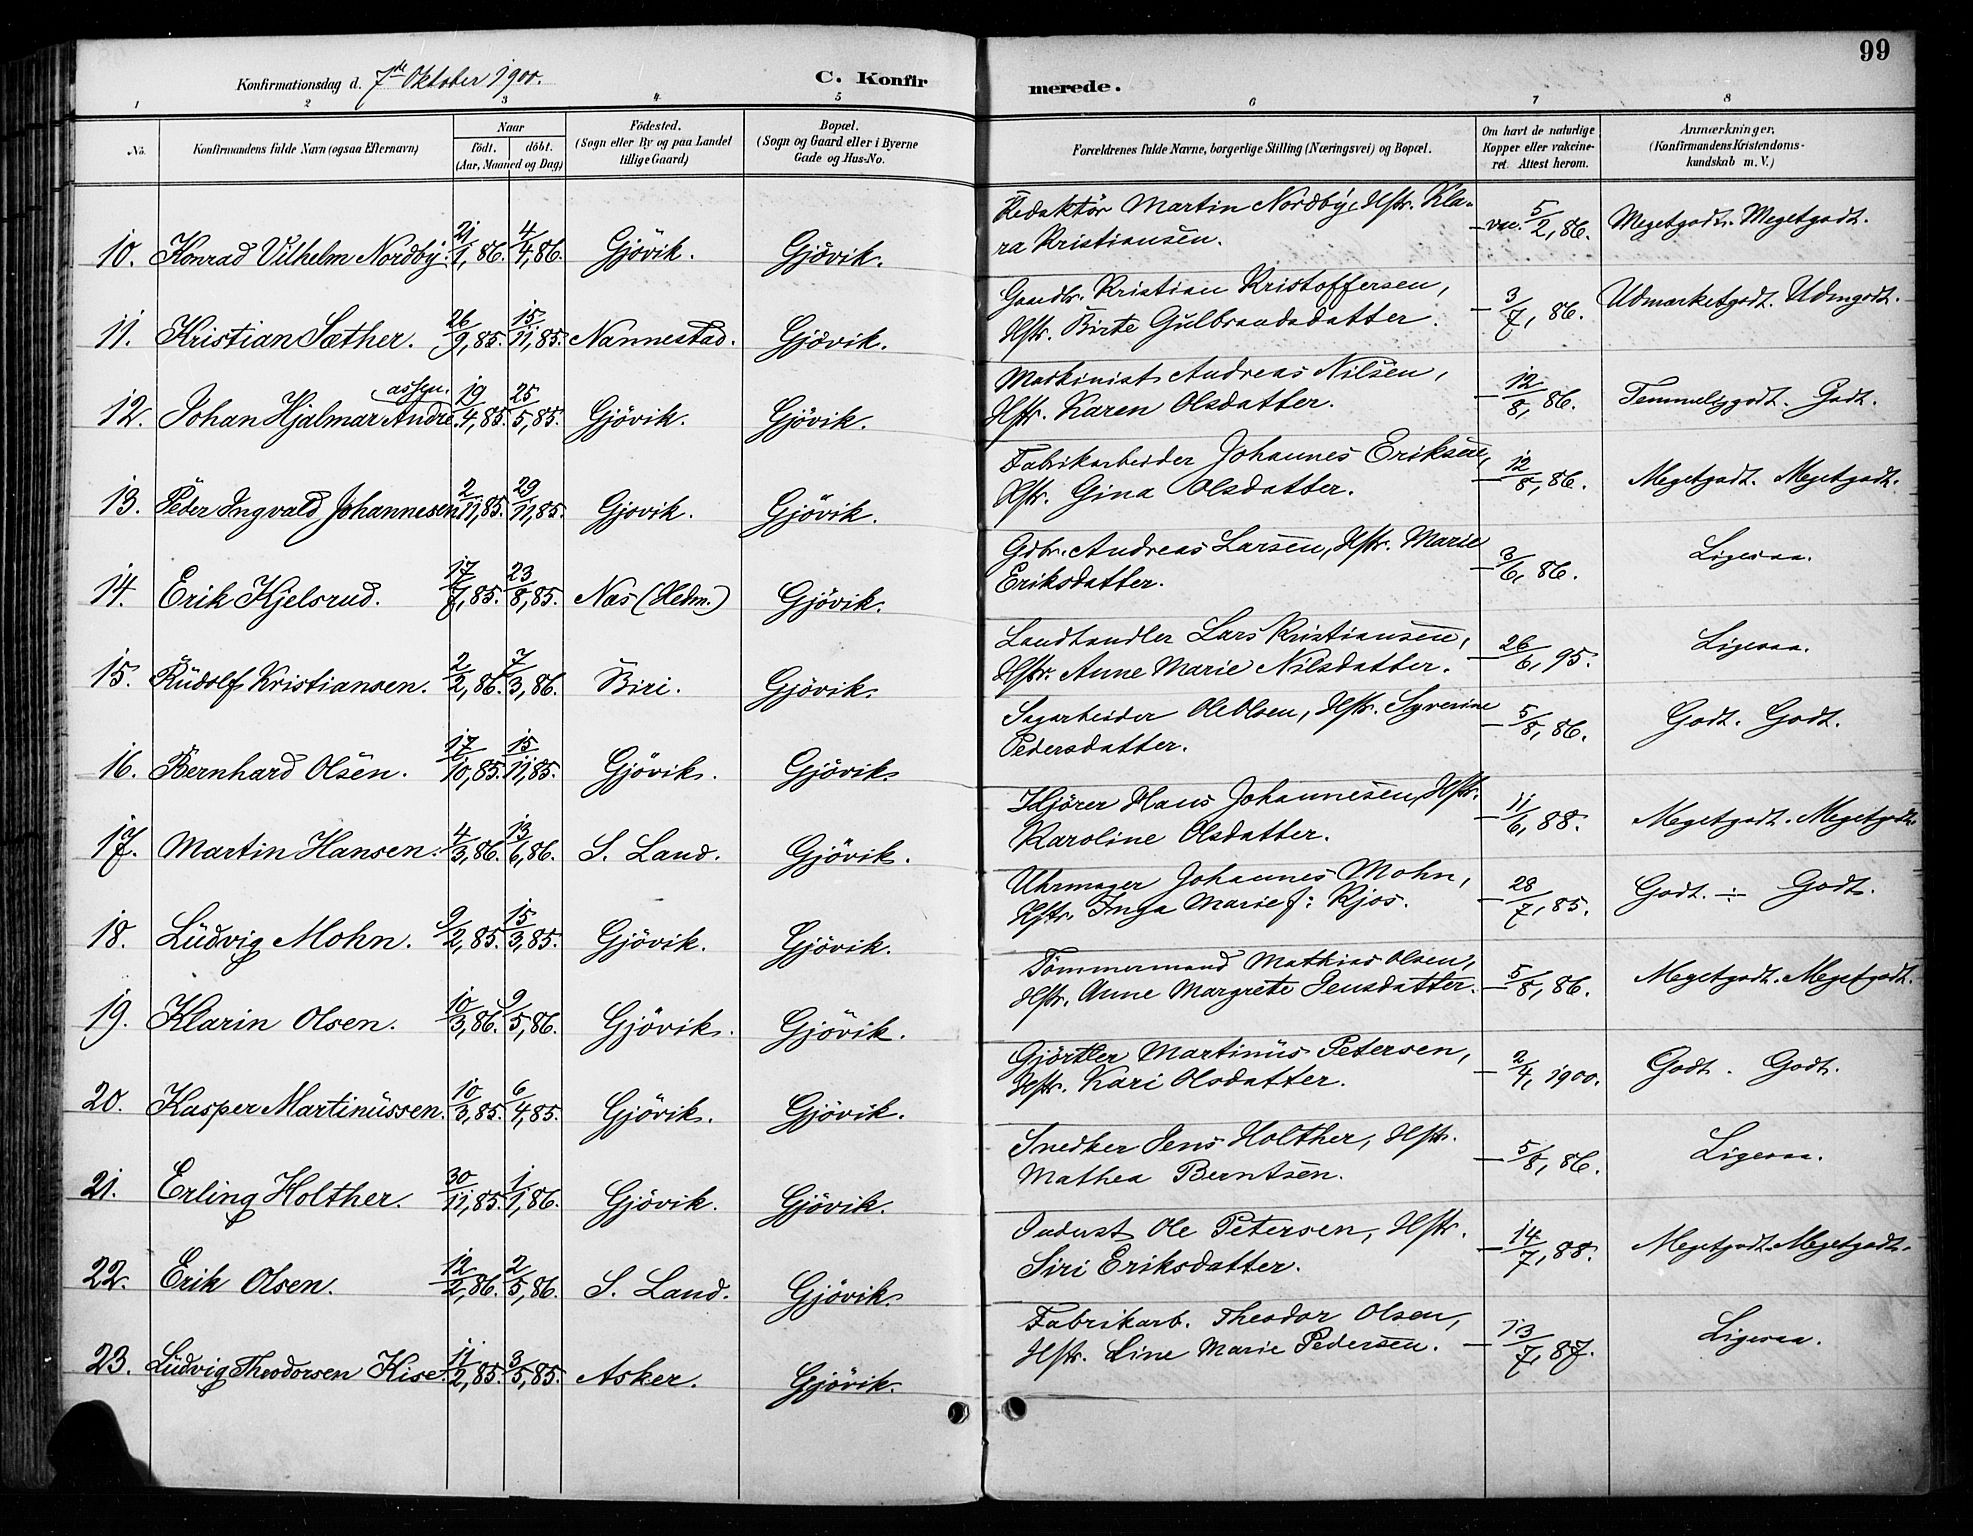 99
Konfirmationsdag d. 7de Oktober 1900.
C. Konfirmerede.
1 2 3 4 5 6 7 8
No. | Konfirmandens fulde Navn (ogsaa Efternavn) | Naar födt. döbt. (Aar, Maaned og Dag) | Födested. (Sogn eller By og paa Landet tillige Gaard) | Bopæl. (Sogn og Gaard eller i Byerne Gade og Hus-No. | Forældrenes fulde Navne, borgerlige Stilling (Næringsvei) og Bopæl. | Om havt de naturlige Kopper eller vakcineret. Attest herom. | Anmærkninger, (Konfirmandens Kristendomskundskab m. V.)
10. Konrad Vilhelm Nordby. 21/1, 86. 4/4, 86. Gjövik. Gjövik. Redaktör Martin Nordby, Hstr. Klara Kristiansen. – vac. 5/2, 86. Megetgodt. Megetgodt.
11. Kristian Sæther. 26/9, 85. 15/11, 85. Nannestad. Gjövik. Gaardbr. Kristian Kristoffersen, Hstr. Birte Gulbrandsdatter. – 3/7, 86. Udmærketgodt. Udmgodt.
12. Johan Hjalmar Andreassen. 19/4, 85. 25/5, 85. Gjövik. Gjövik. Maskinist Andreas Nilsen, Hstr. Karen Olsdatter. – 12/8, 86. Temmeliggodt. Godt.
13. Peder Ingvald Johannesen 2/11, 85. 29/11, 85. Gjovik. Gjövik. Fabrikarbeider Johannes Eriksen, Hstr. Gina Olsdatter. – 12/8, 86. Megetgodt. Megetgodt.
14. Erik Kjelsrud. 17/7, 85. 23/8, 85. Nas (Hedm.) Gjövik. Gdbr. Andreas Larsen, Hstr. Marie Eriksdatter. – 3/6, 86. Ligesaa.
15. Rudolf Kristiansen. 2/2, 86. 7/3, 86. Biri. Gjövik. Landhandler Lars Kristiansen, Hstr. Anne Marie Nilsdatter. – 26/6, 95. Ligesaa.
16. Bernhard Olsen. 17/10, 85. 15/11, 85. Gjövik. Gjövik. Sagarbeider Ole Olsen, Hstr. Syverine Pedersdatter. – 5/8, 86. Godt. Godt.
17. Martin Hansen. 4/3, 86. 13/6, 86. S. Land. Gjövik. Kjörer Hans Johannesen, Hstr. Karoline Olsdatter. – 11/6, 88. Megetgodt. Megetgodt.
18. Ludvig Mohn. 9/2, 85. 15/3, 85. Gjövik. Gjövik. Uhrmager Johannes Mohn, Hstr. Inga Marie f: Kjos. – 28/7, 85. Godt. ÷ Godt.
19. Klarin Olsen. 10/3, 86. 9/5, 86. Gjövik. Gjövik. Tömmermand Mathias Olsen, Hstr. Anne Margrete Jensdatter. – 5/8, 86. Megetgodt. Megetgodt.
20. Kasper Martinussen. 10/3, 85. 6/4, 85. Gjövik. Gjövik. Gjörtler Martinus Petersen, Hstr. Kari Olsdatter. – 2/4, 1900. Godt. Godt.
21. Erling Holther. 30/11, 85. 1/1, 86. Gjövik. Gjövik. Snedker Jens Holther, Hstr. Mathea Berntsen. – 5/8, 86. Ligesaa.
22. Erik Olsen. 12/2, 86. 2/5, 86. S. Land. Gjövik. Inderst Ole Petersen, Hstr. Siri Eriksdatter. – 14/7, 88. Megetgodt. Megetgodt.
23. Ludvig Theodorsen Kise. 11/2, 85. 3/5, 85. Asker. Gjövik. Fabrikarb. Theodor Olsen, Hstr. Line Marie Pedersen. – 13/7, 87. Ligesaa.